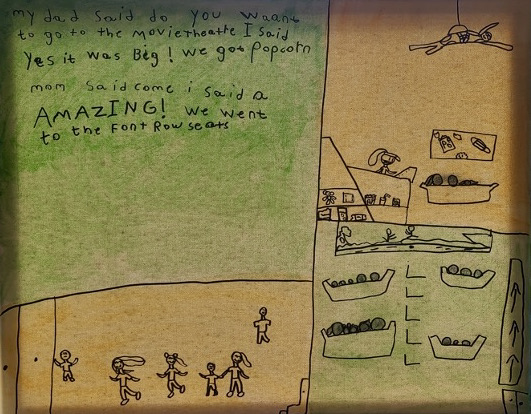 my dad said do you waant
to go to the Movietheatre I said
Yes it was Big! we got Popcorn
mom said come i said a
AMAZING! we went
to the Font Row seats